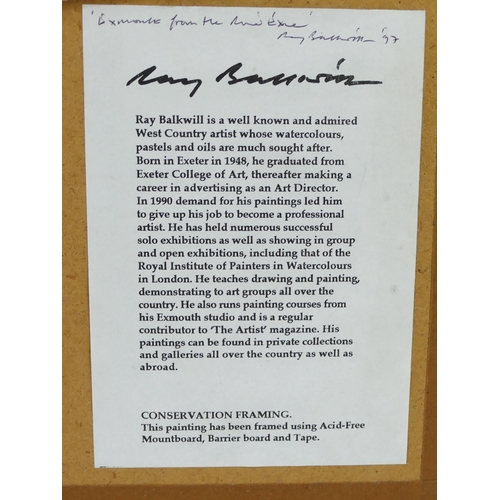 'Exmouth from the River Exe'
Ray Balkwill '97
Ray Balkwill
Ray Balkwill is a well known and admired
West Country artist whose watercolours,
pastels and oils are much sought after.
Born in Exeter in 1948, he graduated from
Exeter College of Art, thereafter making a
career in advertising as an Art Director.
In 1990 demand for his paintings led him
to give up his job to become a professional
artist. He has held numerous successful
solo exhibitions as well as showing in group
and open exhibitions, including that of the
Royal Institute of Painters in Watercolours
in London. He teaches drawing and painting,
demonstrating to art groups all over the
country. He also runs painting courses from
his Exmouth studio and is a regular
contributor to 'The Artist' magazine. His
paintings can be found in private collections
and galleries all over the country as well as
abroad.
CONSERVATION FRAMING.
This painting has been framed using Acid-Free
Mountboard, Barrier board and Tape.